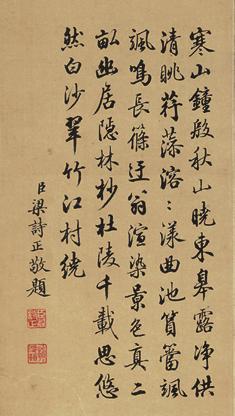 寒山鐘殷秋山曉東皋露淨供
清眺荇藻溶〻漾曲池篔簹颯
颯鳴長篠迂翁渲染景色真二
畝幽居隱林杪杜陵千載思悠
然白沙翠竹江村繞
臣梁詩正敬題